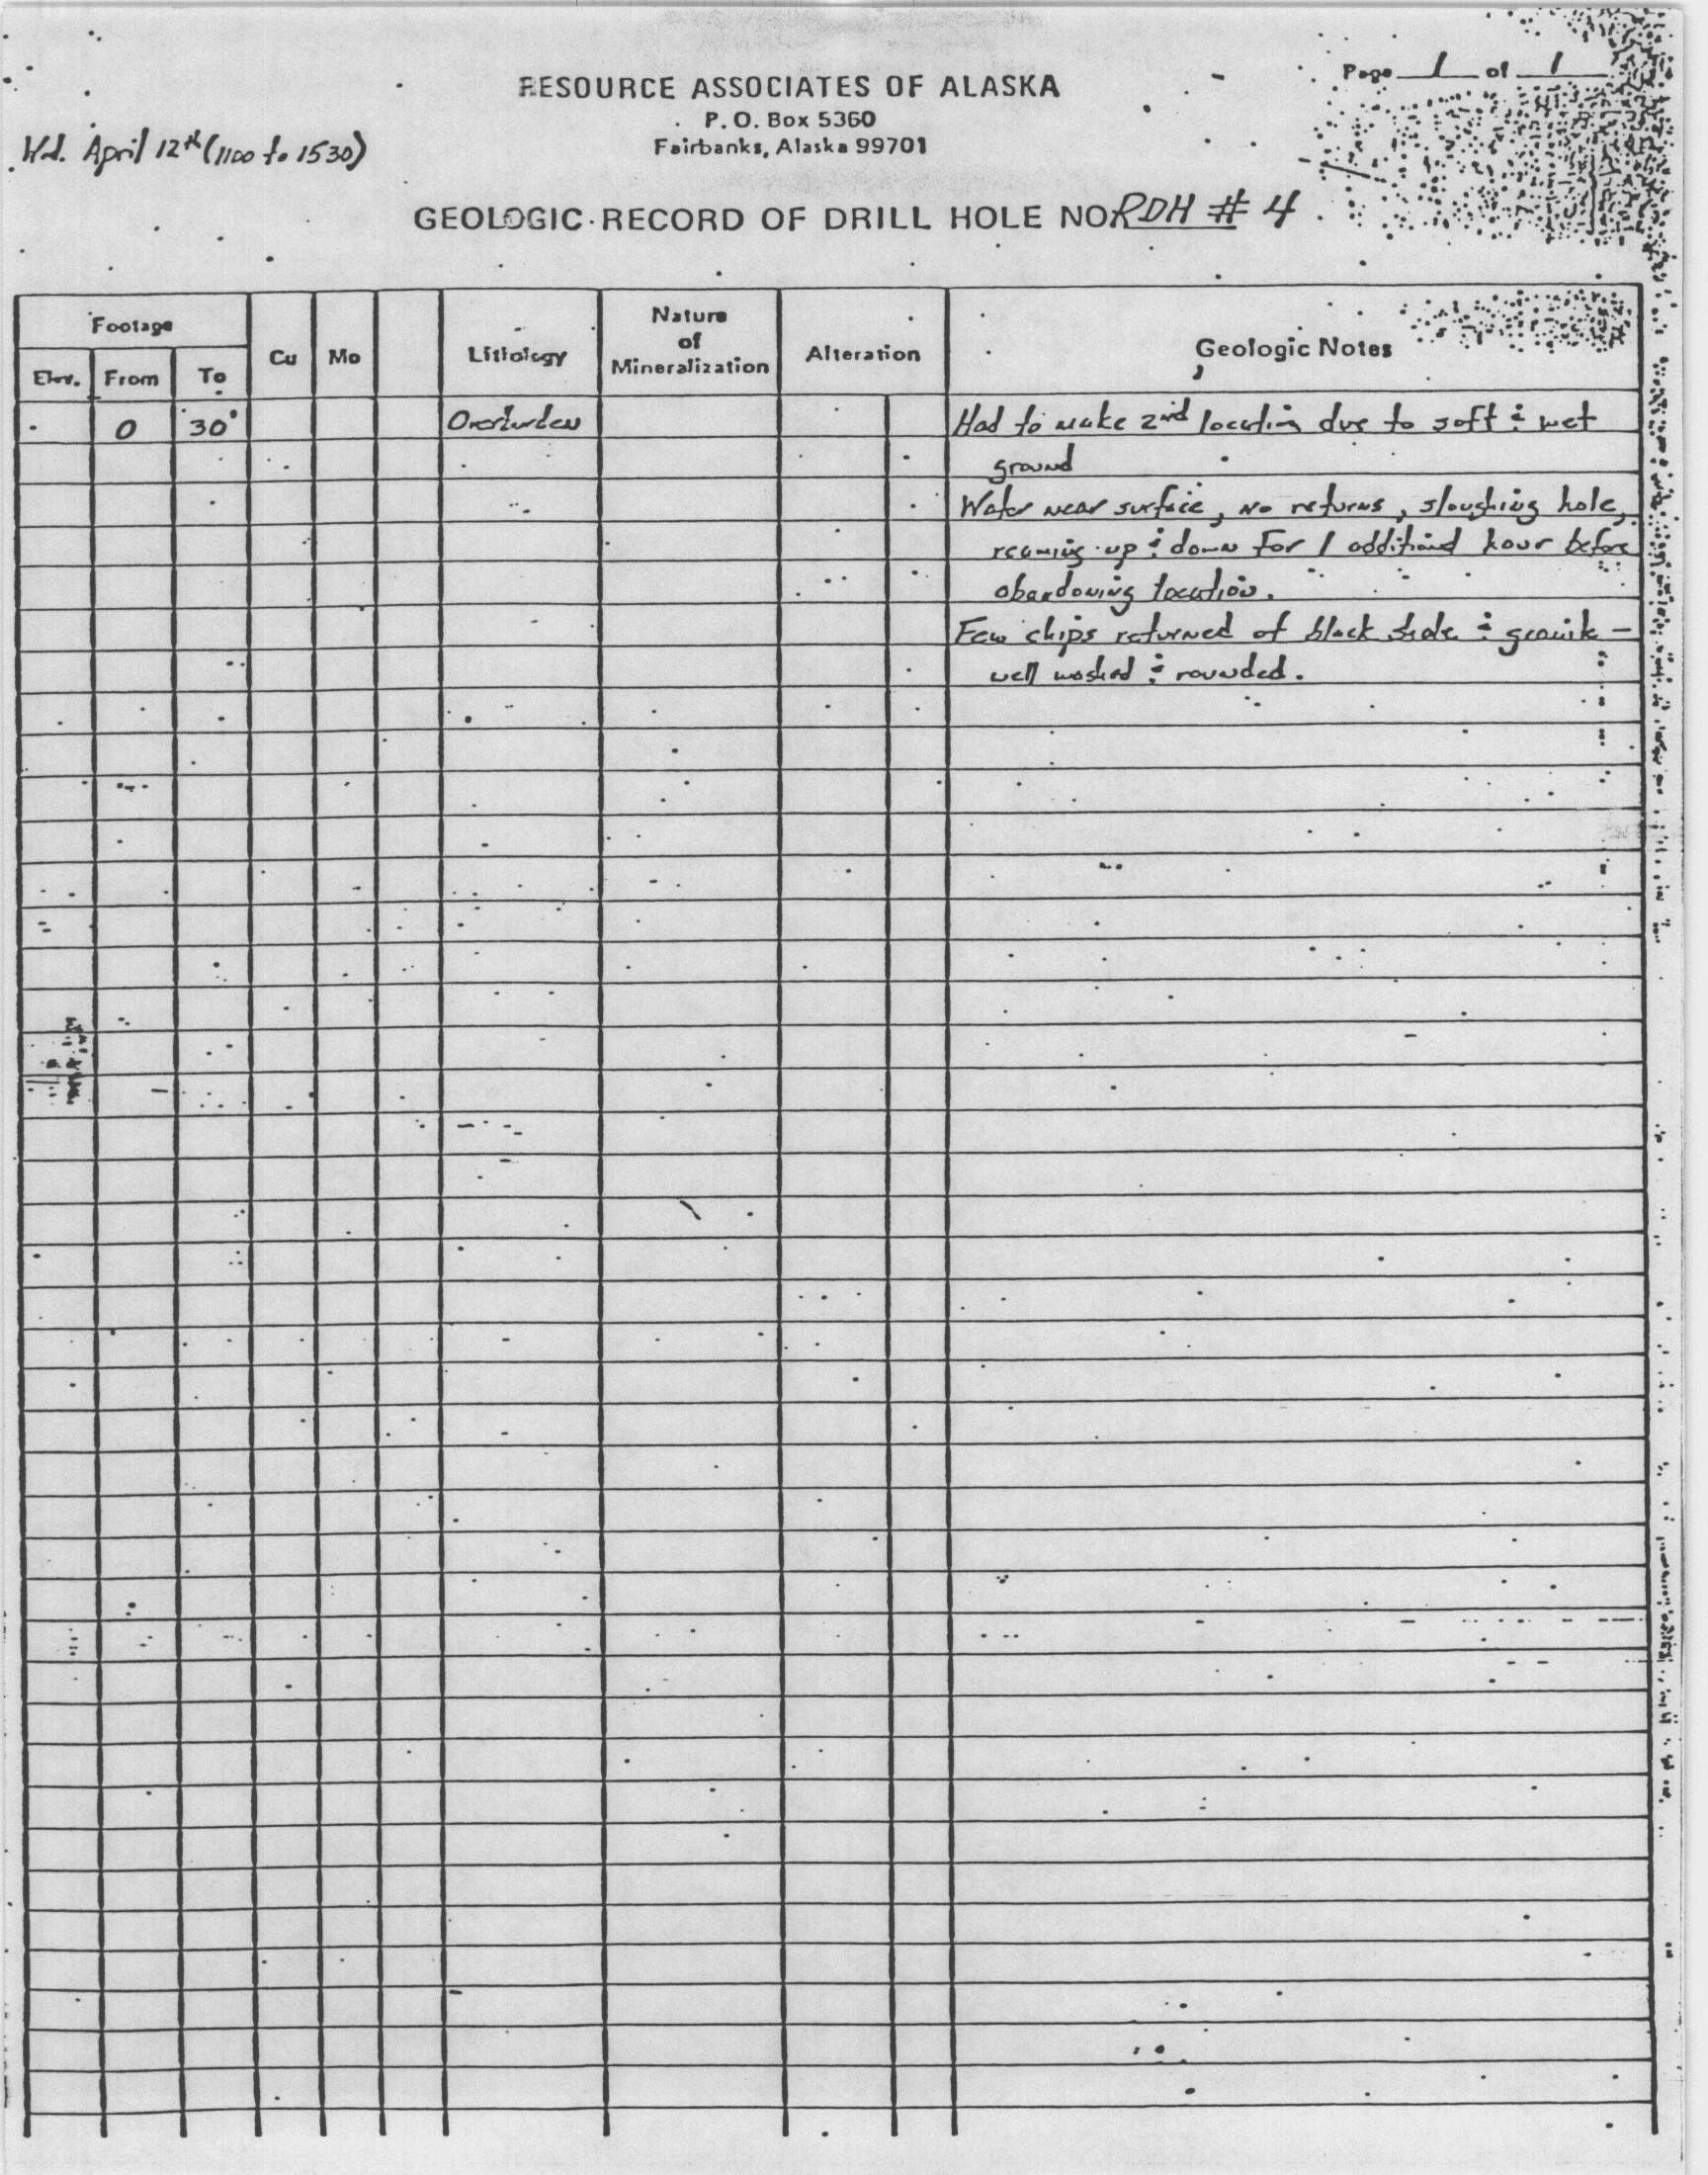 Page 1 of 1
RESOURCE ASSOCIATES OF ALASKA
P. O. Box 5360
Fairbanks, Alaska 99701
Wd. April 12th (1100 to 1530)
GEOLOGIC RECORD OF DRILL HOLE NO. RDH # 4
Footage
Elev. From To
Cu
Mo
Lithology
Nature
of
Mineralization
Alteration
Geologic Notes
0 30' Overburden Had to make 2nd location due to soft & wet
ground
Water near surface, no returns, sloughing hole,
reaming up & down for 1 additional hour before
abandoning location.
Few chips returned of black shale & granite –
well washed & rounded.